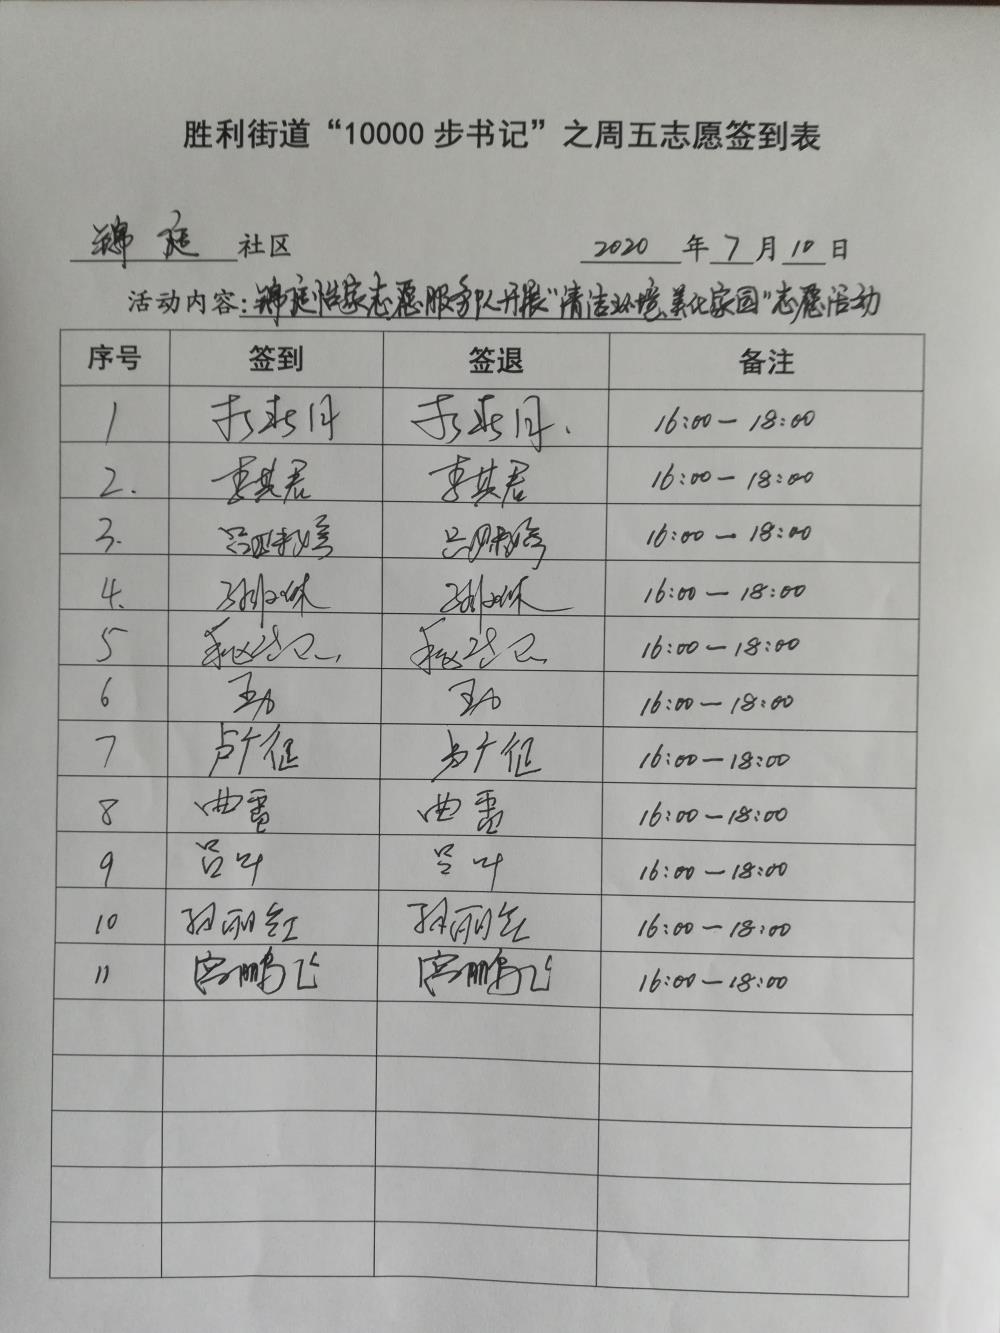 胜利街道“10000步书记”之周五志愿签到表
锦庭 社区 2020 年 7 月 10 日
活动内容：锦庭怡家志愿服务队开展“清洁环境，美化家园”志愿活动
序号 签到 签退 备注
1 16:00—18:00
2. 李其君 李其君 16:00—18:00
3. 16:00—18:00
4. 16:00—18:00
5 16:00—18:00
6 16:00—18:00
7 卢广征 卢广征 16:00—18:00
8 曲雷 曲雷 16:00—18:00
9 吕叶 吕叶 16:00—18:00
10 孙丽红 孙丽红 16:00—18:00
11 宫鹏飞 宫鹏飞 16:00—18:00